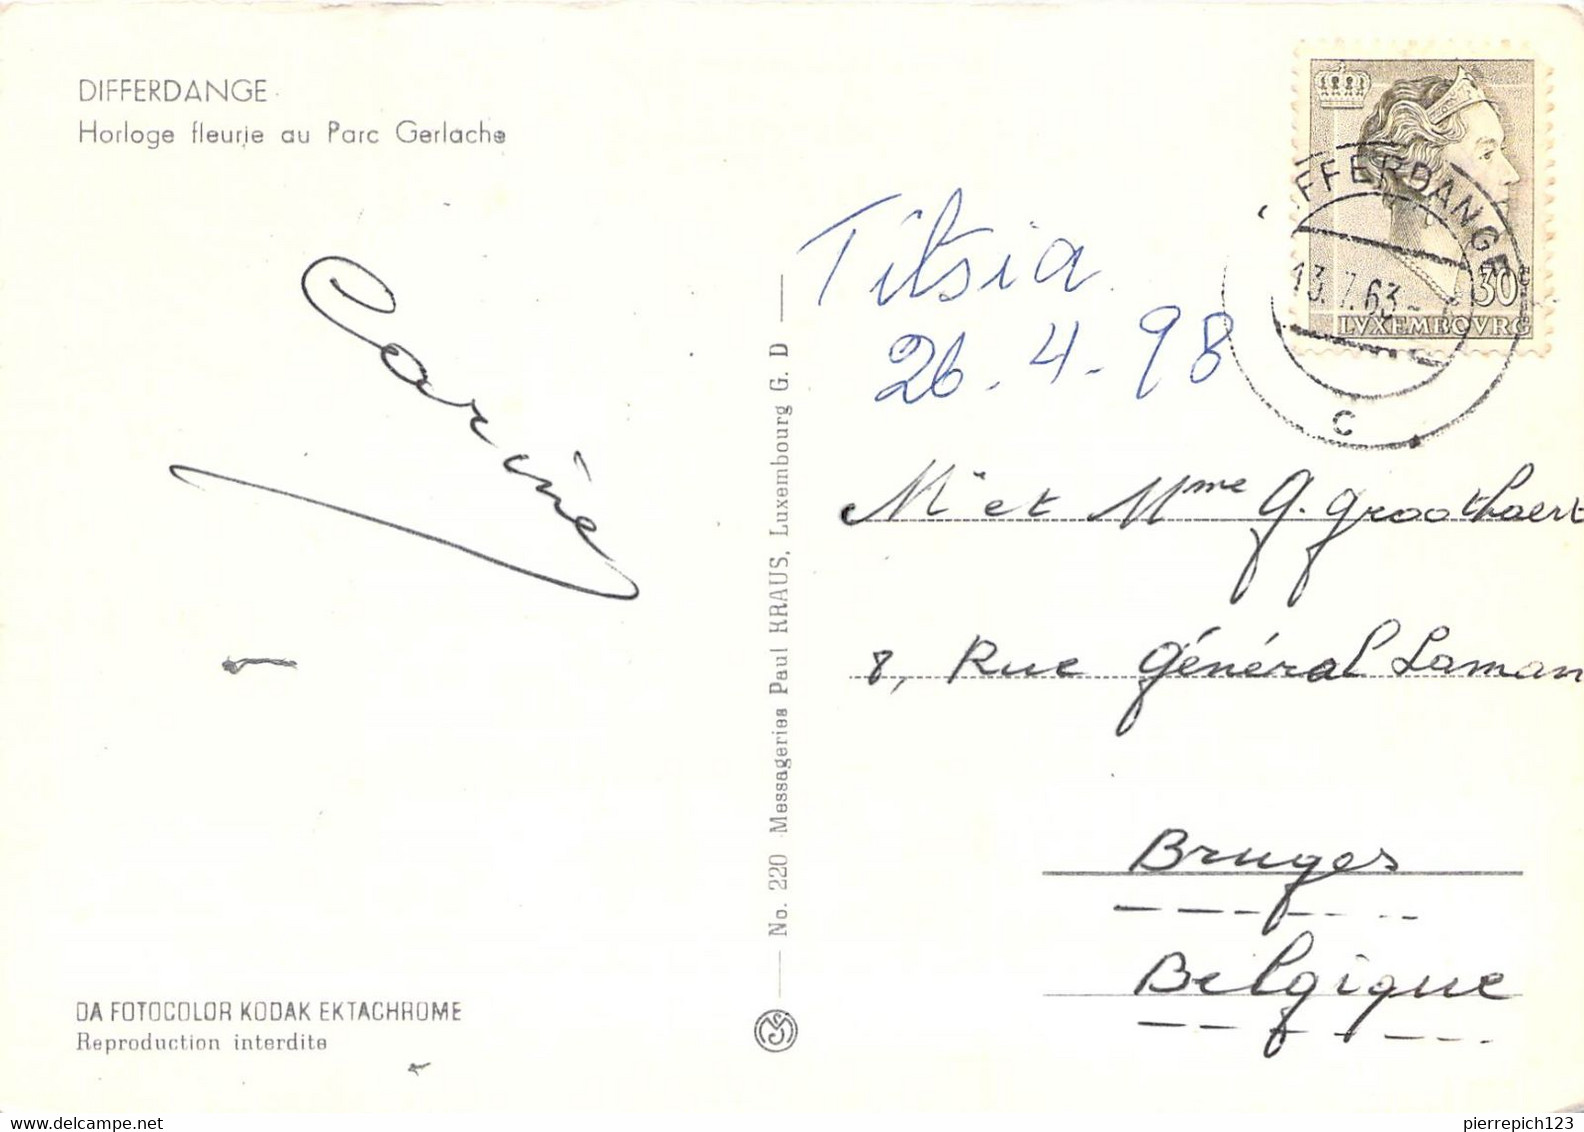 DIFFERDANGE
Horloge fleurie au Parc Gerlache
Corine
DA FOTOCOLOR KODAK EKTACHROME
Reproduction interdite
No. 220 Messageries Paul KRAUS, Luxembourg G. D
30
LVXEMBOVRG
FFERDANGE
13.7.63-
C
Titsia
26-4-98
Mr et Mme G. Groothaert
8, Rue Général Laman
Bruges
Belgique
Delcampe.net
pierrepich123